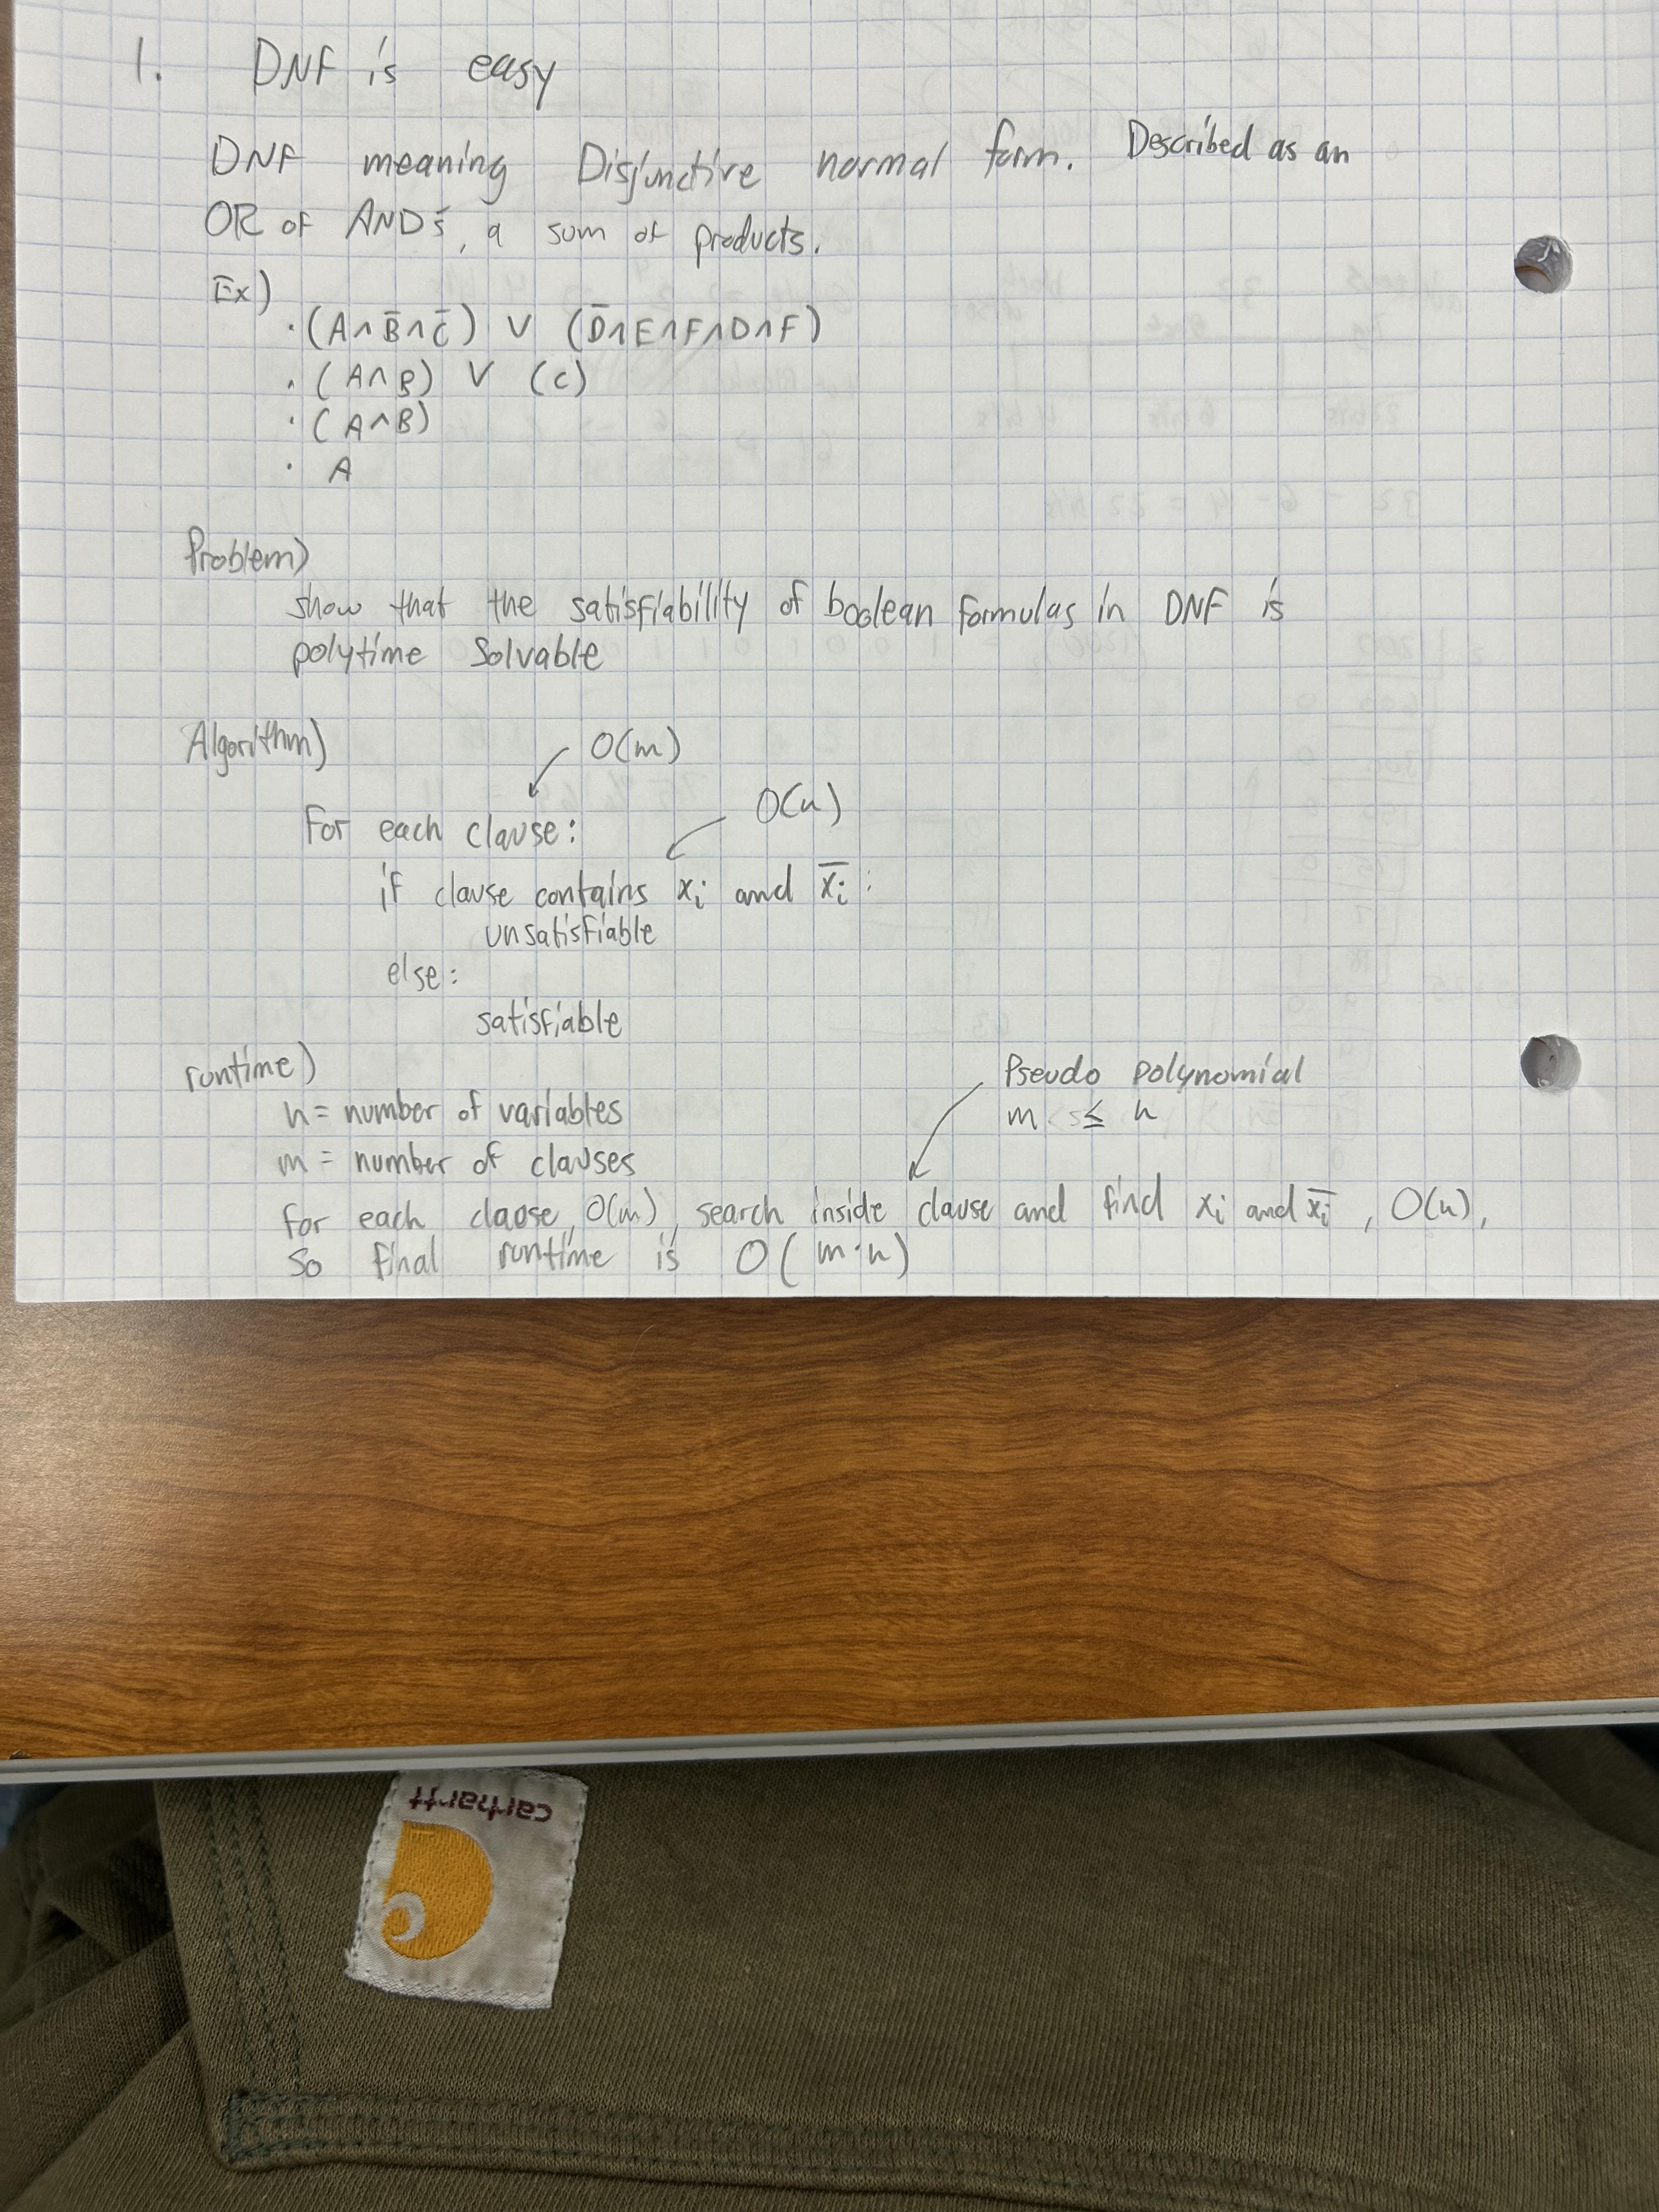 1. DNF is easy
DNF meaning Disjunctive normal form. Described as an
OR of ANDs, a sum of products.
Ex)
· (A ∧ B̅ ∧ C̅) ∨ (D̅ ∧ E ∧ F ∧ D ∧ F)
· (A ∧ B) ∨ (C)
· (A ∧ B)
· A
Problem)
show that the satisfiability of boolean formulas in DNF is
polytime Solvable
Algorithm)
O(m)
For each clause:
O(n)
if clause contains xᵢ and x̅ᵢ:
unsatisfiable
else:
satisfiable
runtime)
Pseudo polynomial
m ≤ n
n = number of variables
m = number of clauses
for each claose, O(m), search inside clause and find xᵢ and x̅ᵢ, O(n),
So final runtime is O(m·n)
carhartt